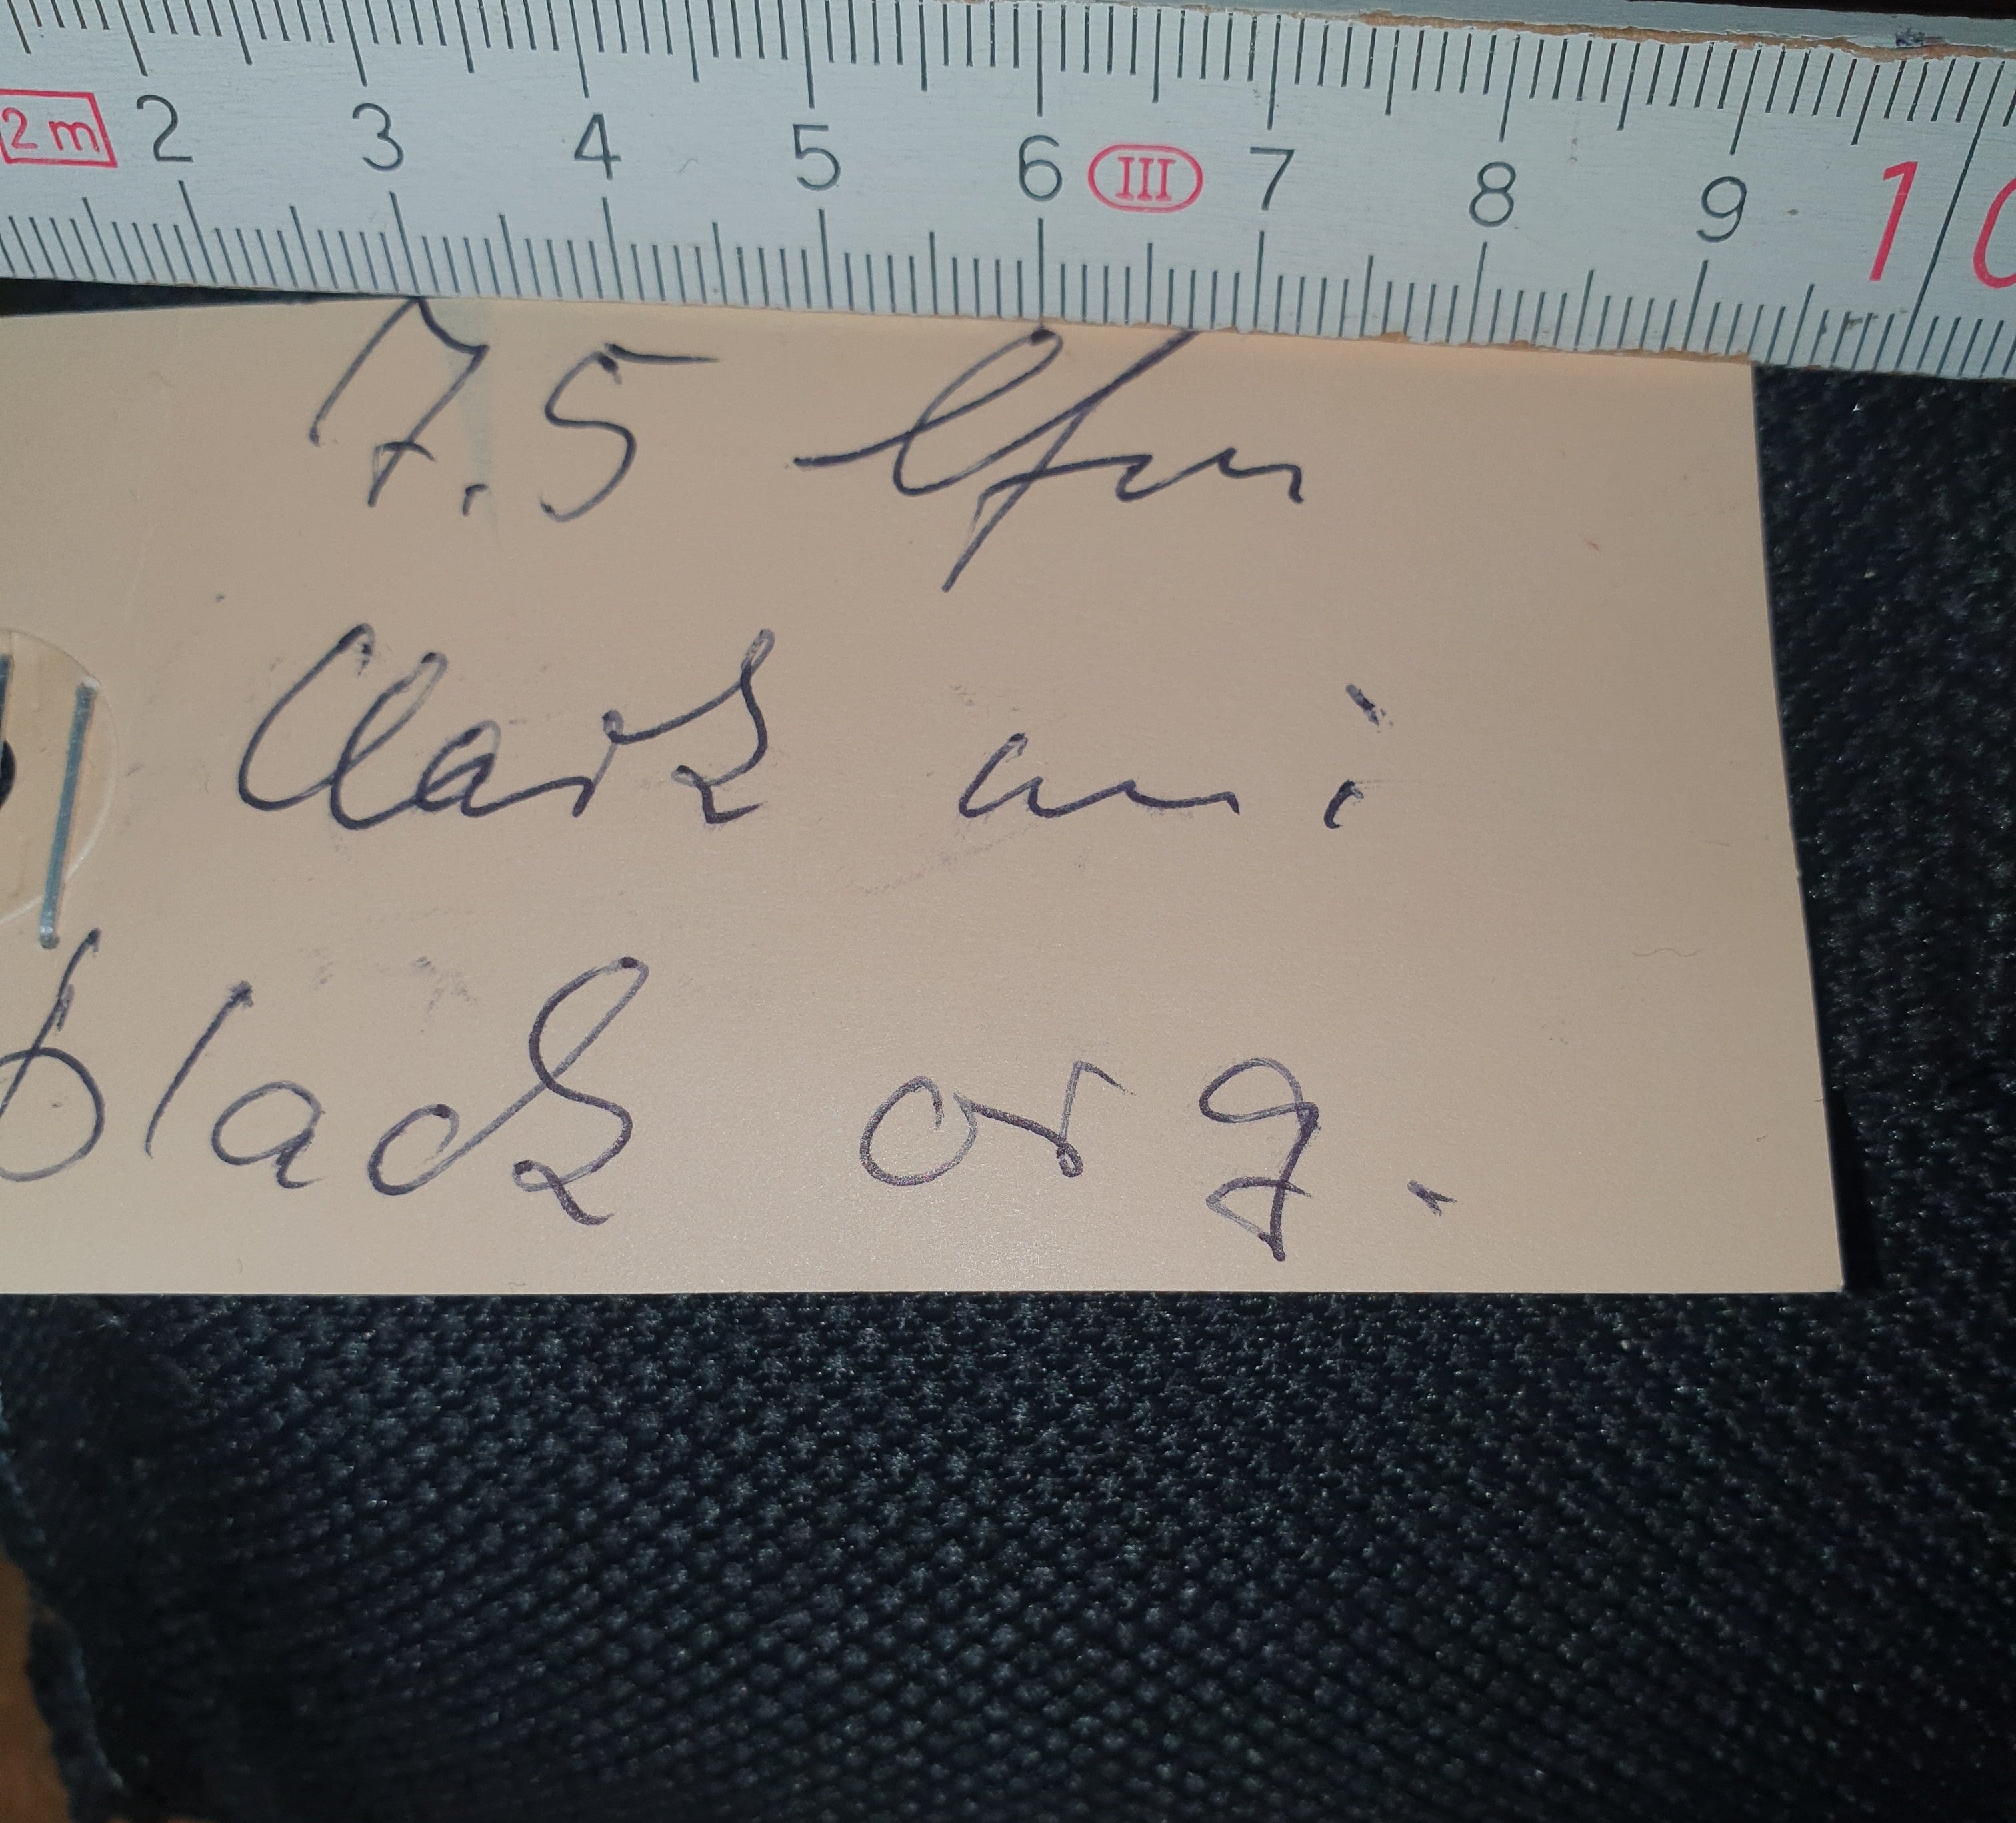 2 m 2 3 4 5 6 III 7 8 9 10
7.5 lfm
Clark uni
black org.